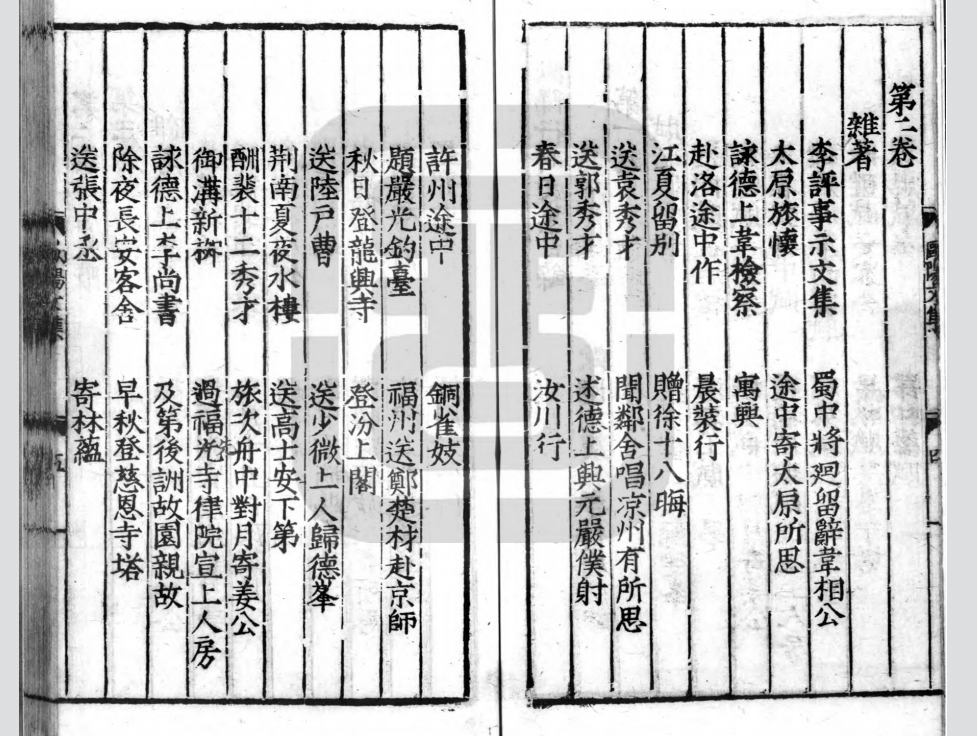 第二卷
雜著
李評事示文集　蜀中將廻留辭韋相公
太原旅懷　途中寄太原所思
詠德上韋檢察　寓興
赴洛途中作　晨裝行
江夏留別　贈徐十八晦
送袁秀才　聞鄰舍唱凉州有所思
送郭秀才　述德上興元嚴僕射
春日途中　汝川行
許州途中　銅雀妓
題嚴光釣臺　福州送鄭楚材赴京師
秋日登龍興寺　登汾上閣
送陸戸曹　送少微上人歸德峯
荆南夏夜水樓　送高士安下第
酬裴十二秀才　旅次舟中對月寄姜公
御溝新　過福光寺律院宣上人房
詠德上李尚書　及第後詶故園親故
除夜長安客舍　早秋登慈恩寺塔
送張中丞　寄林蘊